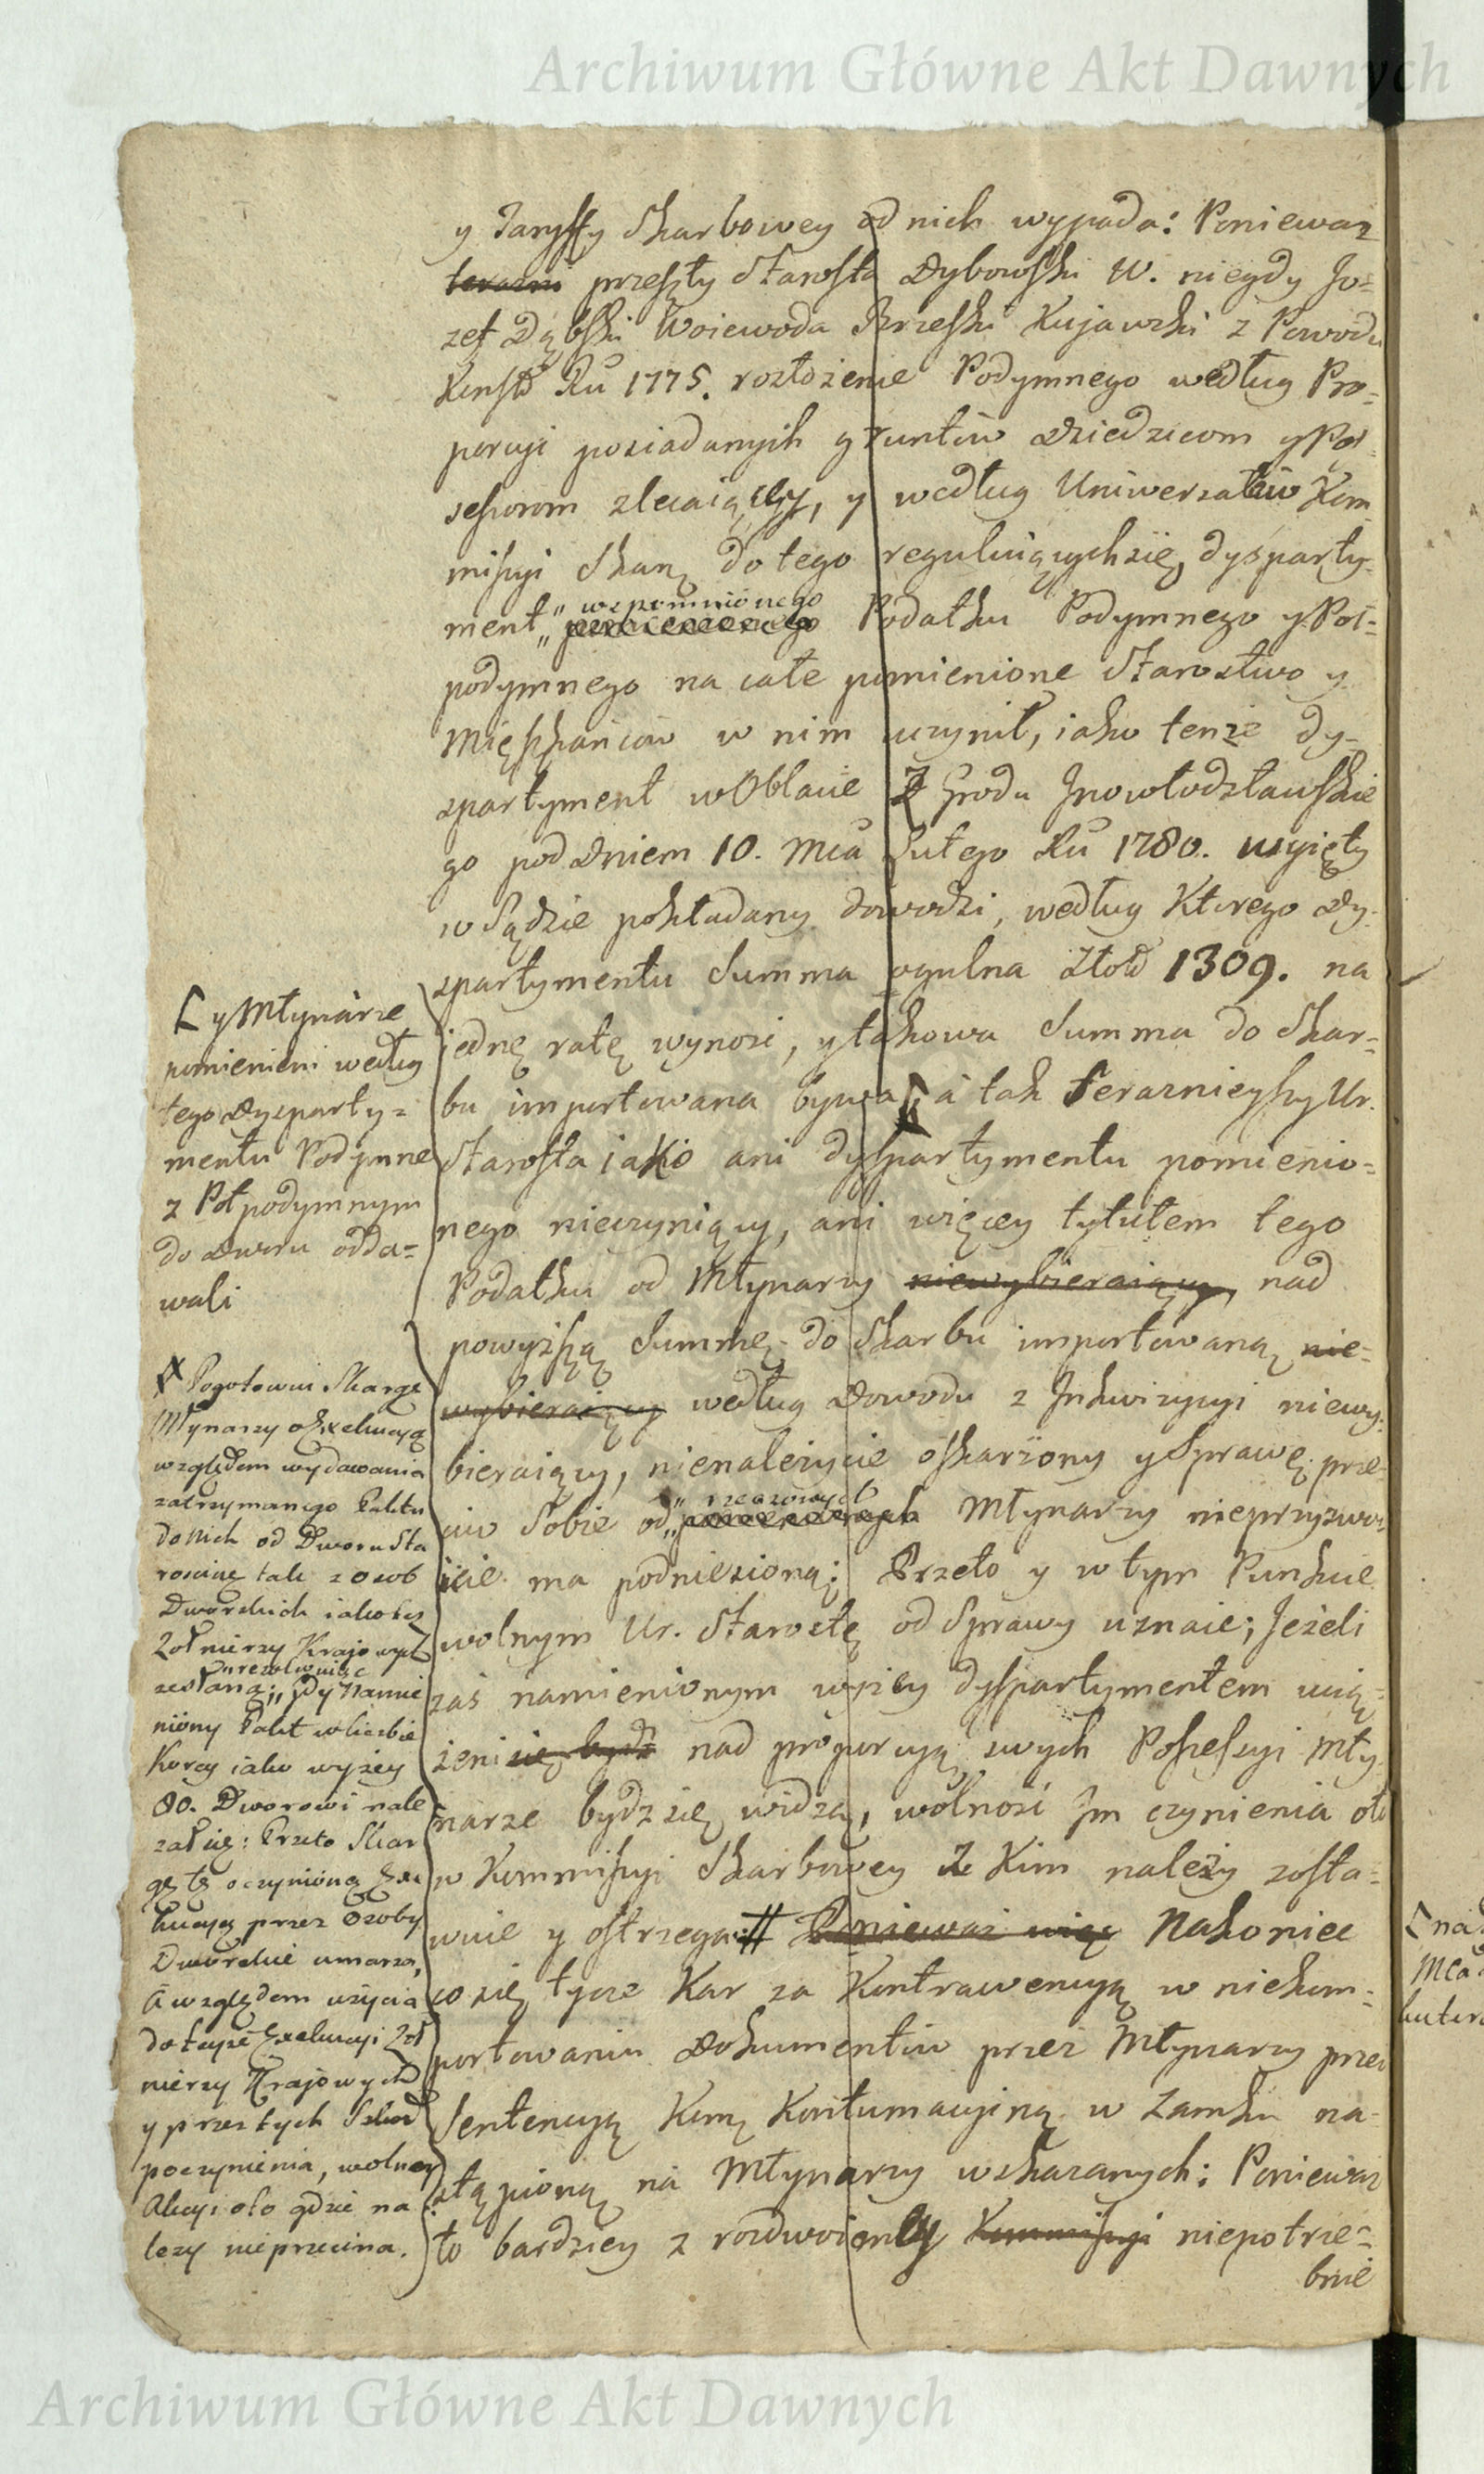 Archiwum Główne Akt Dawnych
y Taryffy Skarbowey od nich wypada: Poniewaz
terazni przeszły Starosta Dybowski W. niegdy Jo=
zef Dąbski Woiewoda Brzeski Kujawski z Powodu
Konstt Ru 1775. rozłożenie Podymnego według Pro=
porcyi posiadanych gruntów Dziedzicom y Pos=
sessorom zlecaiący, y według Uniwersałów Kom
missyi Skarą do tego reguluiących się, dysparty=
ment „wspomnionego
„pomienionego Podatku Podymnego y Poł=
podymnego na całe pomienione Starostwo y
Mięszkańców w nim uczynił, iako tenże dy=
spartyment w Oblacie Z Grodu Jnowłodzławskie
go pod Dniem 10. Mca Lutego Ru 1780. wyięty
w Sądzie pokładany dowodzi, według Ktorego Dy=
spartymentu Summa ogulna Złott 1309. na
iednę ratę wynosi, y takowa Summa do Skar=
bu importowana bywa, á tak Teraznieyszy Ur.
Starosta iako ani dyspartymentu pomienio=
nego nieczyniący, ani więcey tytułem tego
Podatku od Młynarzy niewybieraiący, nad
powyższą Summę do Skarbu importowaną nie=
wybieraiący według Dowodu z Inkwizycyi niewy=
bieraiący, nienależycie oskarżony y Sprawę prze=
„rzeczonych
ciw Sobie od „pomienionych Młynarzy nieprzyzwo=
icie ma podniesioną; Przeto y w tym Punkcie
wolnym Ur. Starostę od Sprawy uznaie; Jeżeli
zaś namienionym wyżey dyspartymentem ucią=
żeni się bydz nad proporcyą swych Possessyi Mły=
narze bydz się widzą, wolność Jm czynienia oto
w Kommissyi Skarbowey Z Kim należy zosta=
wuie y ostrzega: # Ponieważ więc Nakoniec
co się tycze Kar za Kontrawencyą w niekom=
portowaniu Dokumentów przez Młynarzy przez
Sentencyą Komą Kontumacyiną w Zamku na=
stąpioną na Młynarzy wskazanych: Ponieważ
to bardziey z rozdwoienej Kommissyi niepotrze=
bnie
[ y Młynarze
pomienieni według
tego Dysparty=
mentu Podymne
z Poł podymnym
do Dworu odda=
wali
# Pogotowiu Skargę
Młynarzy o Exekucyą
względem wydawania
zatrzymanego Paktu
do nich od Dworu Sta
rościnę tak z osob
Dworskich iako też
Zołnierzy Krajowych
„rezolwuiąc
zesłaną; „gdy namie
niony Pakt w liczbie
Korcy iako wyżey
80. Dworowi nale
żał się: Przeto Skar
gę tę o czynioną Exe
kucyą przez Osoby
Dworskie umarza,
á względem użycia
do teyże Exekucyi Zoł
nierzy Krajowych
y przez tych Szkod
poczynienia, wolney
Akcyi oto gdzie na
leży nieprzecina.
[ na
Mca
Archiwum Główne Akt Dawnych